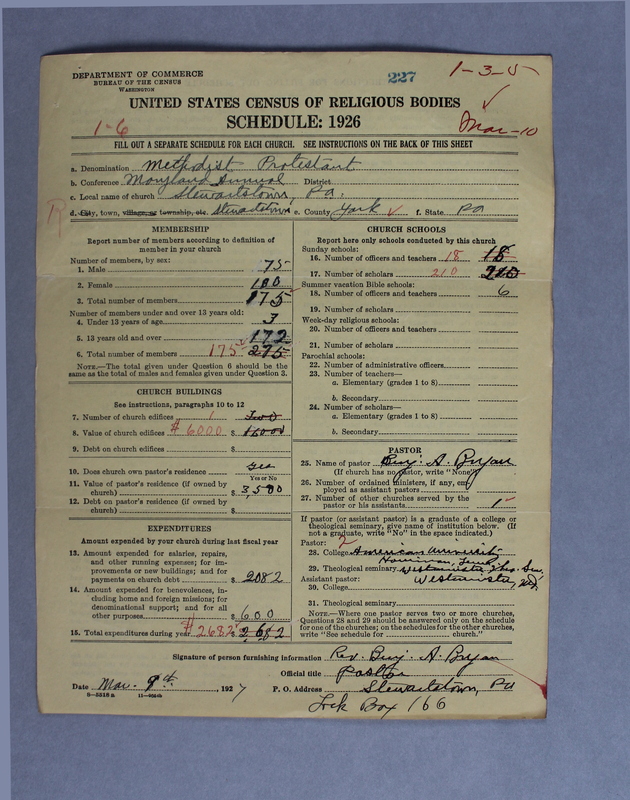 DEPARTMENT OF COMMERCE
BUREAU OF THE CENSUS
WASHINGTON
227
1-3-5
UNITED STATES CENSUS OF RELIGIOUS BODIES
SCHEDULE: 1926
1-6
Mar-10
FILL OUT A SEPARATE SCHEDULE FOR EACH CHURCH. SEE INSTRUCTIONS ON THE BACK OF THIS SHEET
a. Denomination Methodist Protestant
b. Conference Maryland Annual District
c. Local name of church Stewartstown, Pa.
R
d. City, town, village, or township, etc. Stewartstown e. County York f. State Pa
MEMBERSHIP
Report number of members according to definition of member in your church
Number of members, by sex:
1. Male 75
2. Female 100
3. Total number of members 175
Number of members under and over 13 years old:
4. Under 13 years of age 3
5. 13 years old and over 172
6. Total number of members 175 275
NOTE.—The total given under Question 6 should be the same as the total of males and females given under Question 3.
CHURCH BUILDINGS
See instructions, paragraphs 10 to 12
7. Number of church edifices 1 Two
8. Value of church edifices $6000 $ 16000
9. Debt on church edifices $
10. Does church own pastor's residence yes
Yes or No
11. Value of pastor's residence (if owned by church) $ 3,500
12. Debt on pastor's residence (if owned by church) $
EXPENDITURES
Amount expended by your church during last fiscal year
13. Amount expended for salaries, repairs, and other running expenses; for improvements or new buildings; and for payments on church debt $ 2082
14. Amount expended for benevolences, including home and foreign missions; for denominational support; and for all other purposes $ 600
15. Total expenditures during year $2682 $ 2682
CHURCH SCHOOLS
Report here only schools conducted by this church
Sunday schools:
16. Number of officers and teachers 18 18
17. Number of scholars 210 210
Summer vacation Bible schools:
18. Number of officers and teachers 6
19. Number of scholars
Week-day religious schools:
20. Number of officers and teachers
21. Number of scholars
Parochial schools:
22. Number of administrative officers
23. Number of teachers—
a. Elementary (grades 1 to 8)
b. Secondary
24. Number of scholars—
a. Elementary (grades 1 to 8)
b. Secondary
PASTOR
25. Name of pastor Benj. A. Bryan
(If church has no pastor, write "None")
26. Number of ordained ministers, if any, employed as assistant pastors
27. Number of other churches served by the pastor or his assistants 1
If pastor (or assistant pastor) is a graduate of a college or theological seminary, give name of institution below. (If not a graduate, write "No" in the space indicated.)
Pastor: 2
28. College American University
29. Theological seminary Westminster Theo. Sem.
Assistant pastor: Westminster, Md.
30. College
31. Theological seminary
NOTE.—Where one pastor serves two or more churches, Questions 28 and 29 should be answered only on the schedule for one of the churches; on the schedules for the other churches, write "See schedule for church.")
Signature of person furnishing information Rev. Benj. A. Bryan
Official title Pastor
Date Mar. 9th, 1927 P. O. Address Stewartstown, Pa
8-5518 a
Lock Box 166